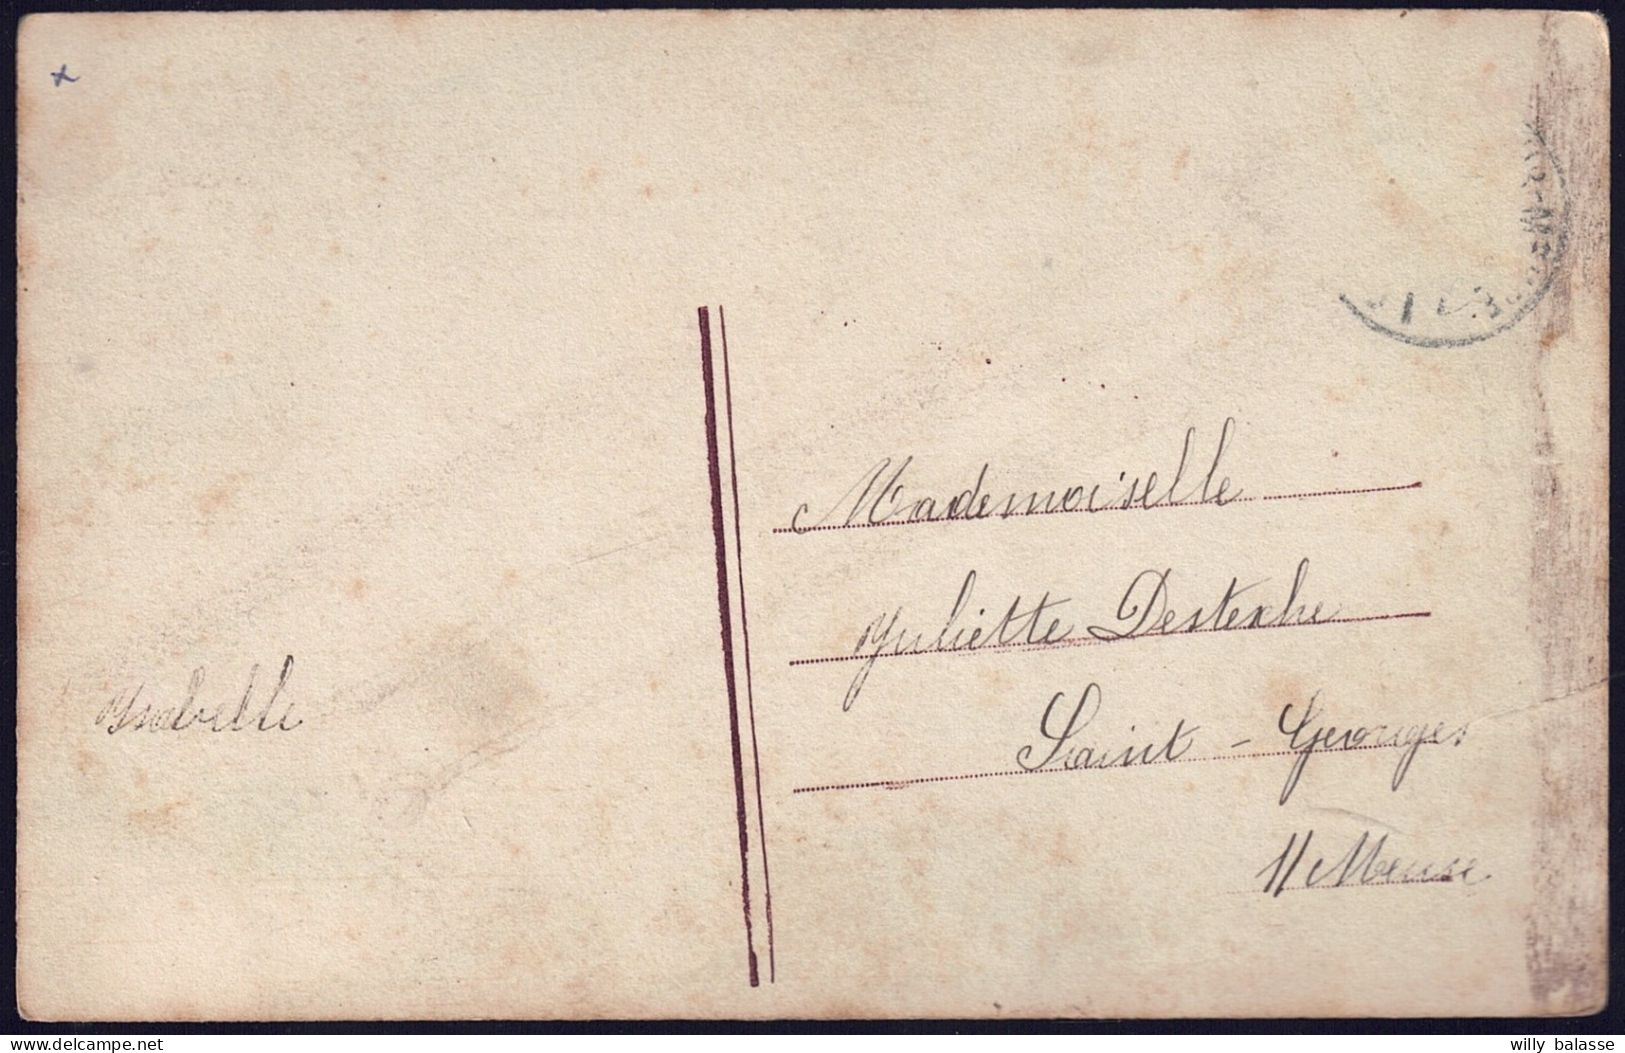 x
Mademoiselle
Juliette Destexhe
Saint - Georges
s/ Meuse
Ysabelle
delcampe.net
willy balasse